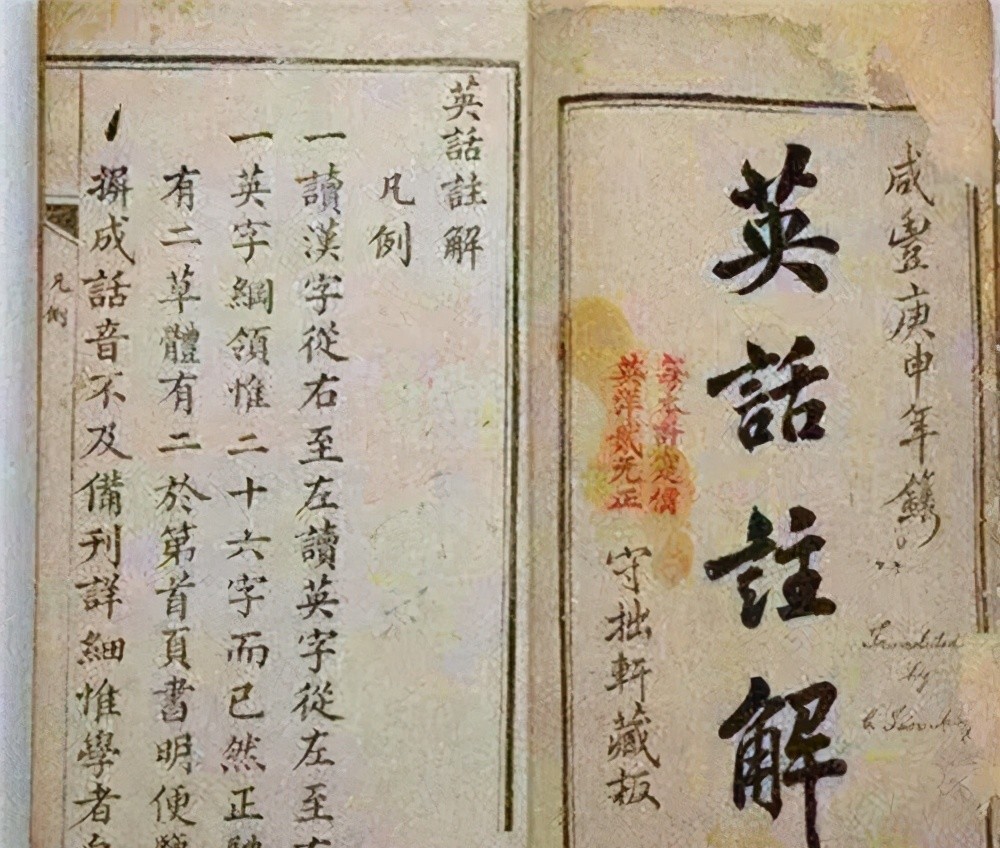 咸豐庚申年鐫
英話註解
守拙軒藏板
每本計定價
英洋貳元正
Translated
by
英話註解
凡例
一讀漢字從右至左讀英字從左至右
一英字綱領惟二十六字而已然正
有二草體有二於第首頁書明便
一摒成話音不及備刊詳細惟學者
凡例